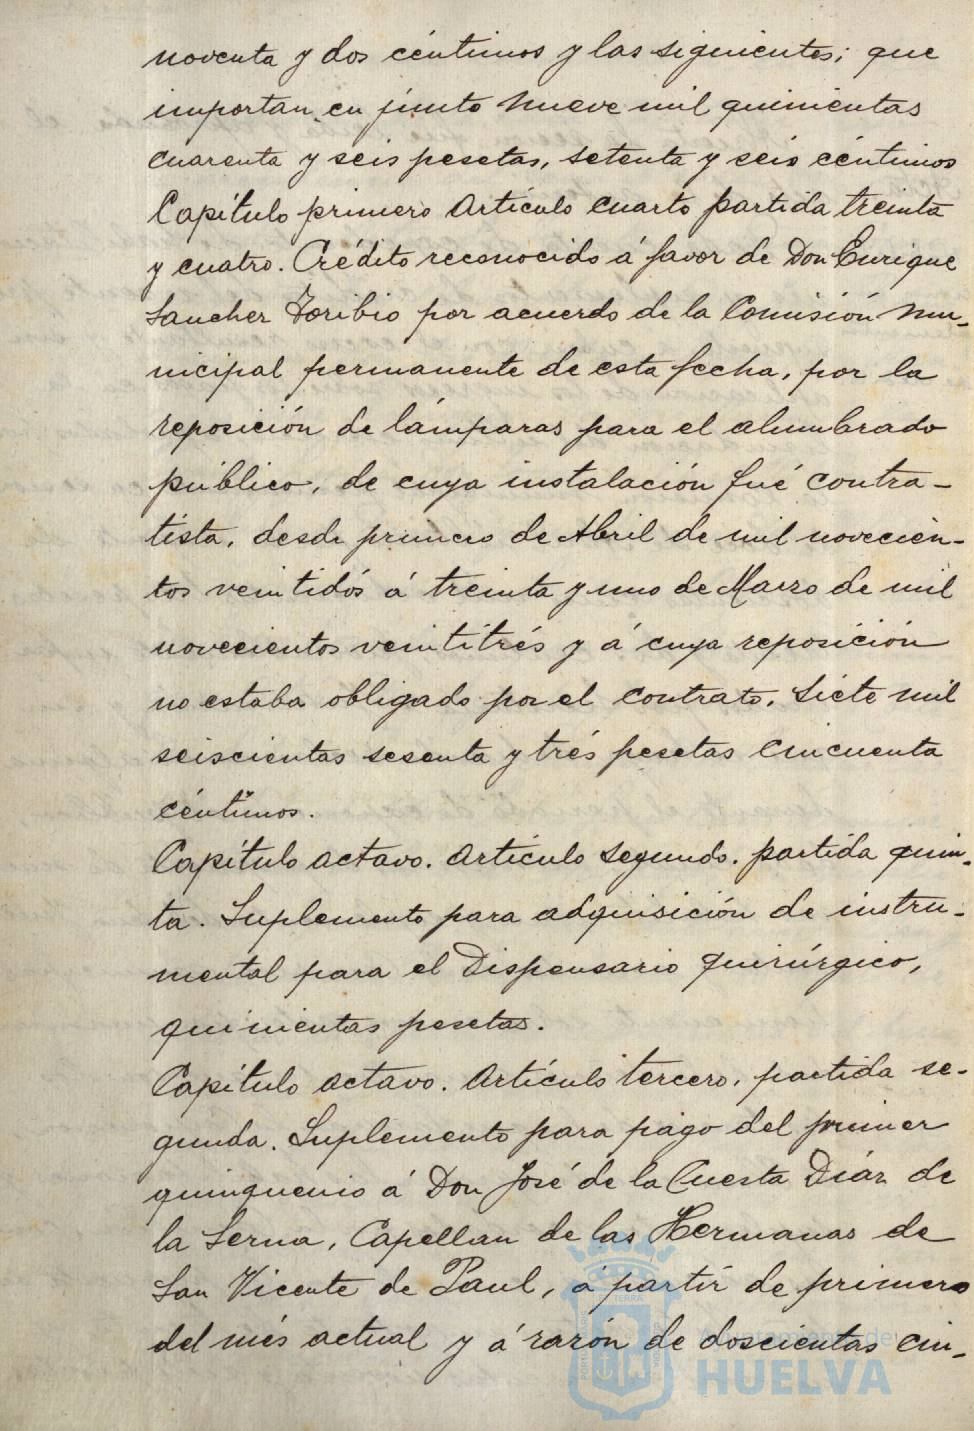 noventa y dos céntimos y las siguientes; que
importan en junto nueve mil quinientas
cuarenta y seis pesetas, setenta y seis céntimos
Capítulo primero Artículo cuarto partida treinta
y cuatro. Crédito reconocido á favor de Don Enrique
Sancher Toribio por acuerdo de la Comisión Mu-
nicipal permanente de esta fecha, por la
reposición de lámparas para el alumbrado
público, de cuya instalación fué contra-
tista, desde primero de Abril de mil novecien-
tos veintidós á treinta y uno de Marzo de mil
novecientos veintitrés y á cuya reposición
no estaba obligado por el contrato, siete mil
seiscientas sesenta y trés pesetas cincuenta
céntimos.
Capítulo octavo. Artículo segundo. partida quin-
ta. Suplemento para adquisición de instru-
mental para el Dispensario quirúrgico,
quinientas pesetas.
Capítulo octavo. Artículo tercero, partida se-
gunda. Suplemento para pago del primer
quinquenio á Don José de la Cuesta Diáz de
la Serna, Capellan de las Hermanas de
San Vicente de Paul, á partir de primero
del més actual y á razón de doscientas cin-
Ayuntamiento de
HUELVA